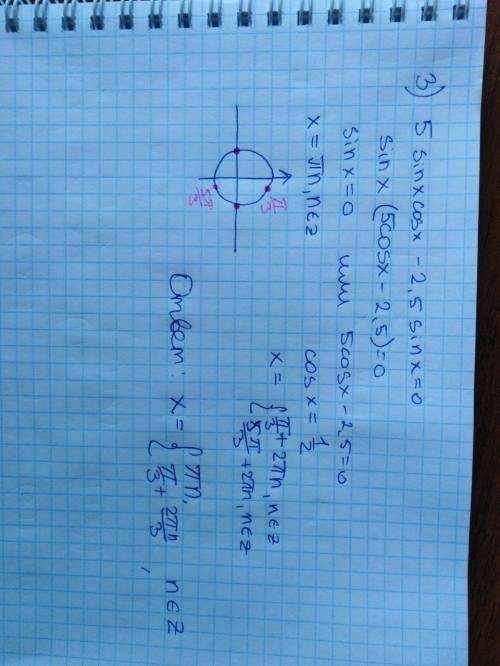 3) 5 sinx cosx - 2,5 sin x = 0
sinx (5cosx - 2,5) = 0
sinx = 0 или 5cosx - 2,5 = 0
x = πn, n∈z
cosx = 1/2
x = { π/3 + 2πn, n∈z
5π/3 + 2πn, n∈z
π/3
5π/3
Ответ: x = { πn,
π/3 + 2πn/3, n∈z